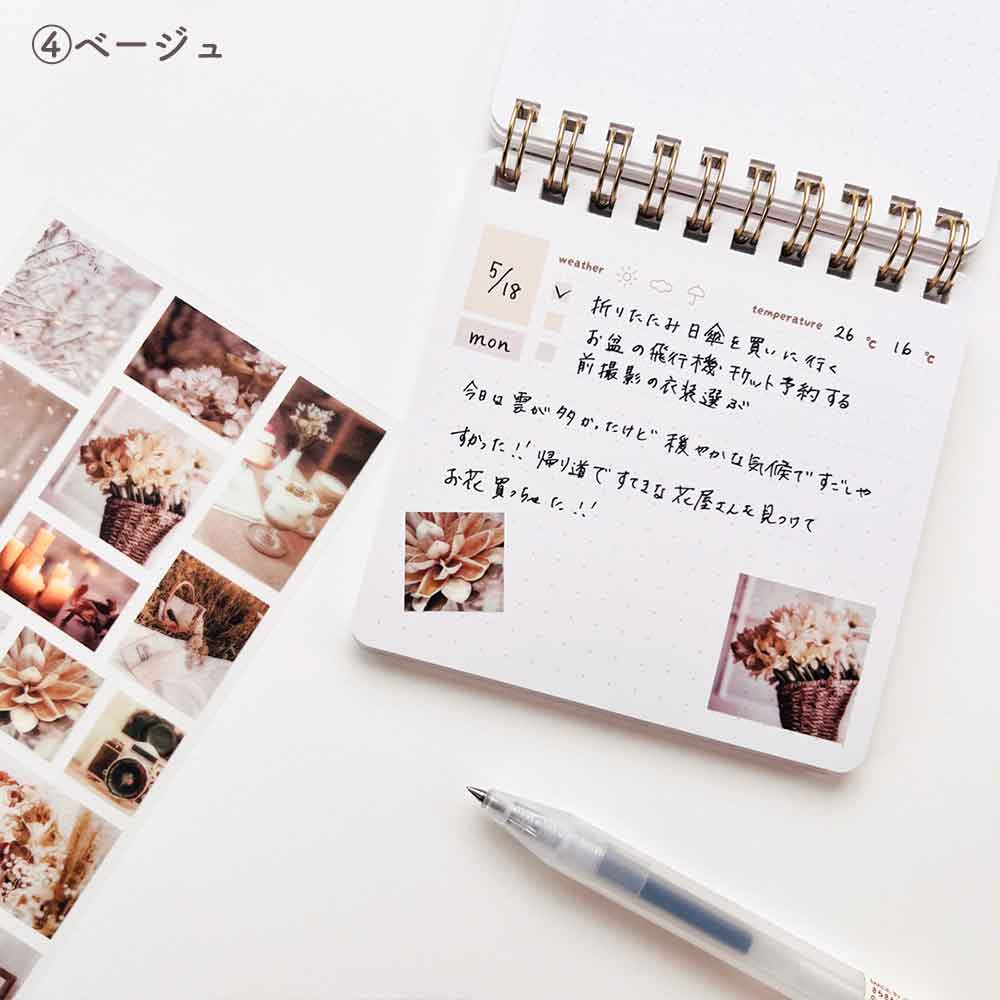 ④ベージュ
5/18
mon
weather
temperature 26 ℃ 16 ℃
折りたたみ日傘を買いに行く
お盆の飛行機チケット予約する
前撮影の衣装選ぶ
今日は雲が多かったけど穏やかな気候ですごしや
すかった!! 帰り道ですてきな花屋さんを見つけて
お花買っちゃった!!